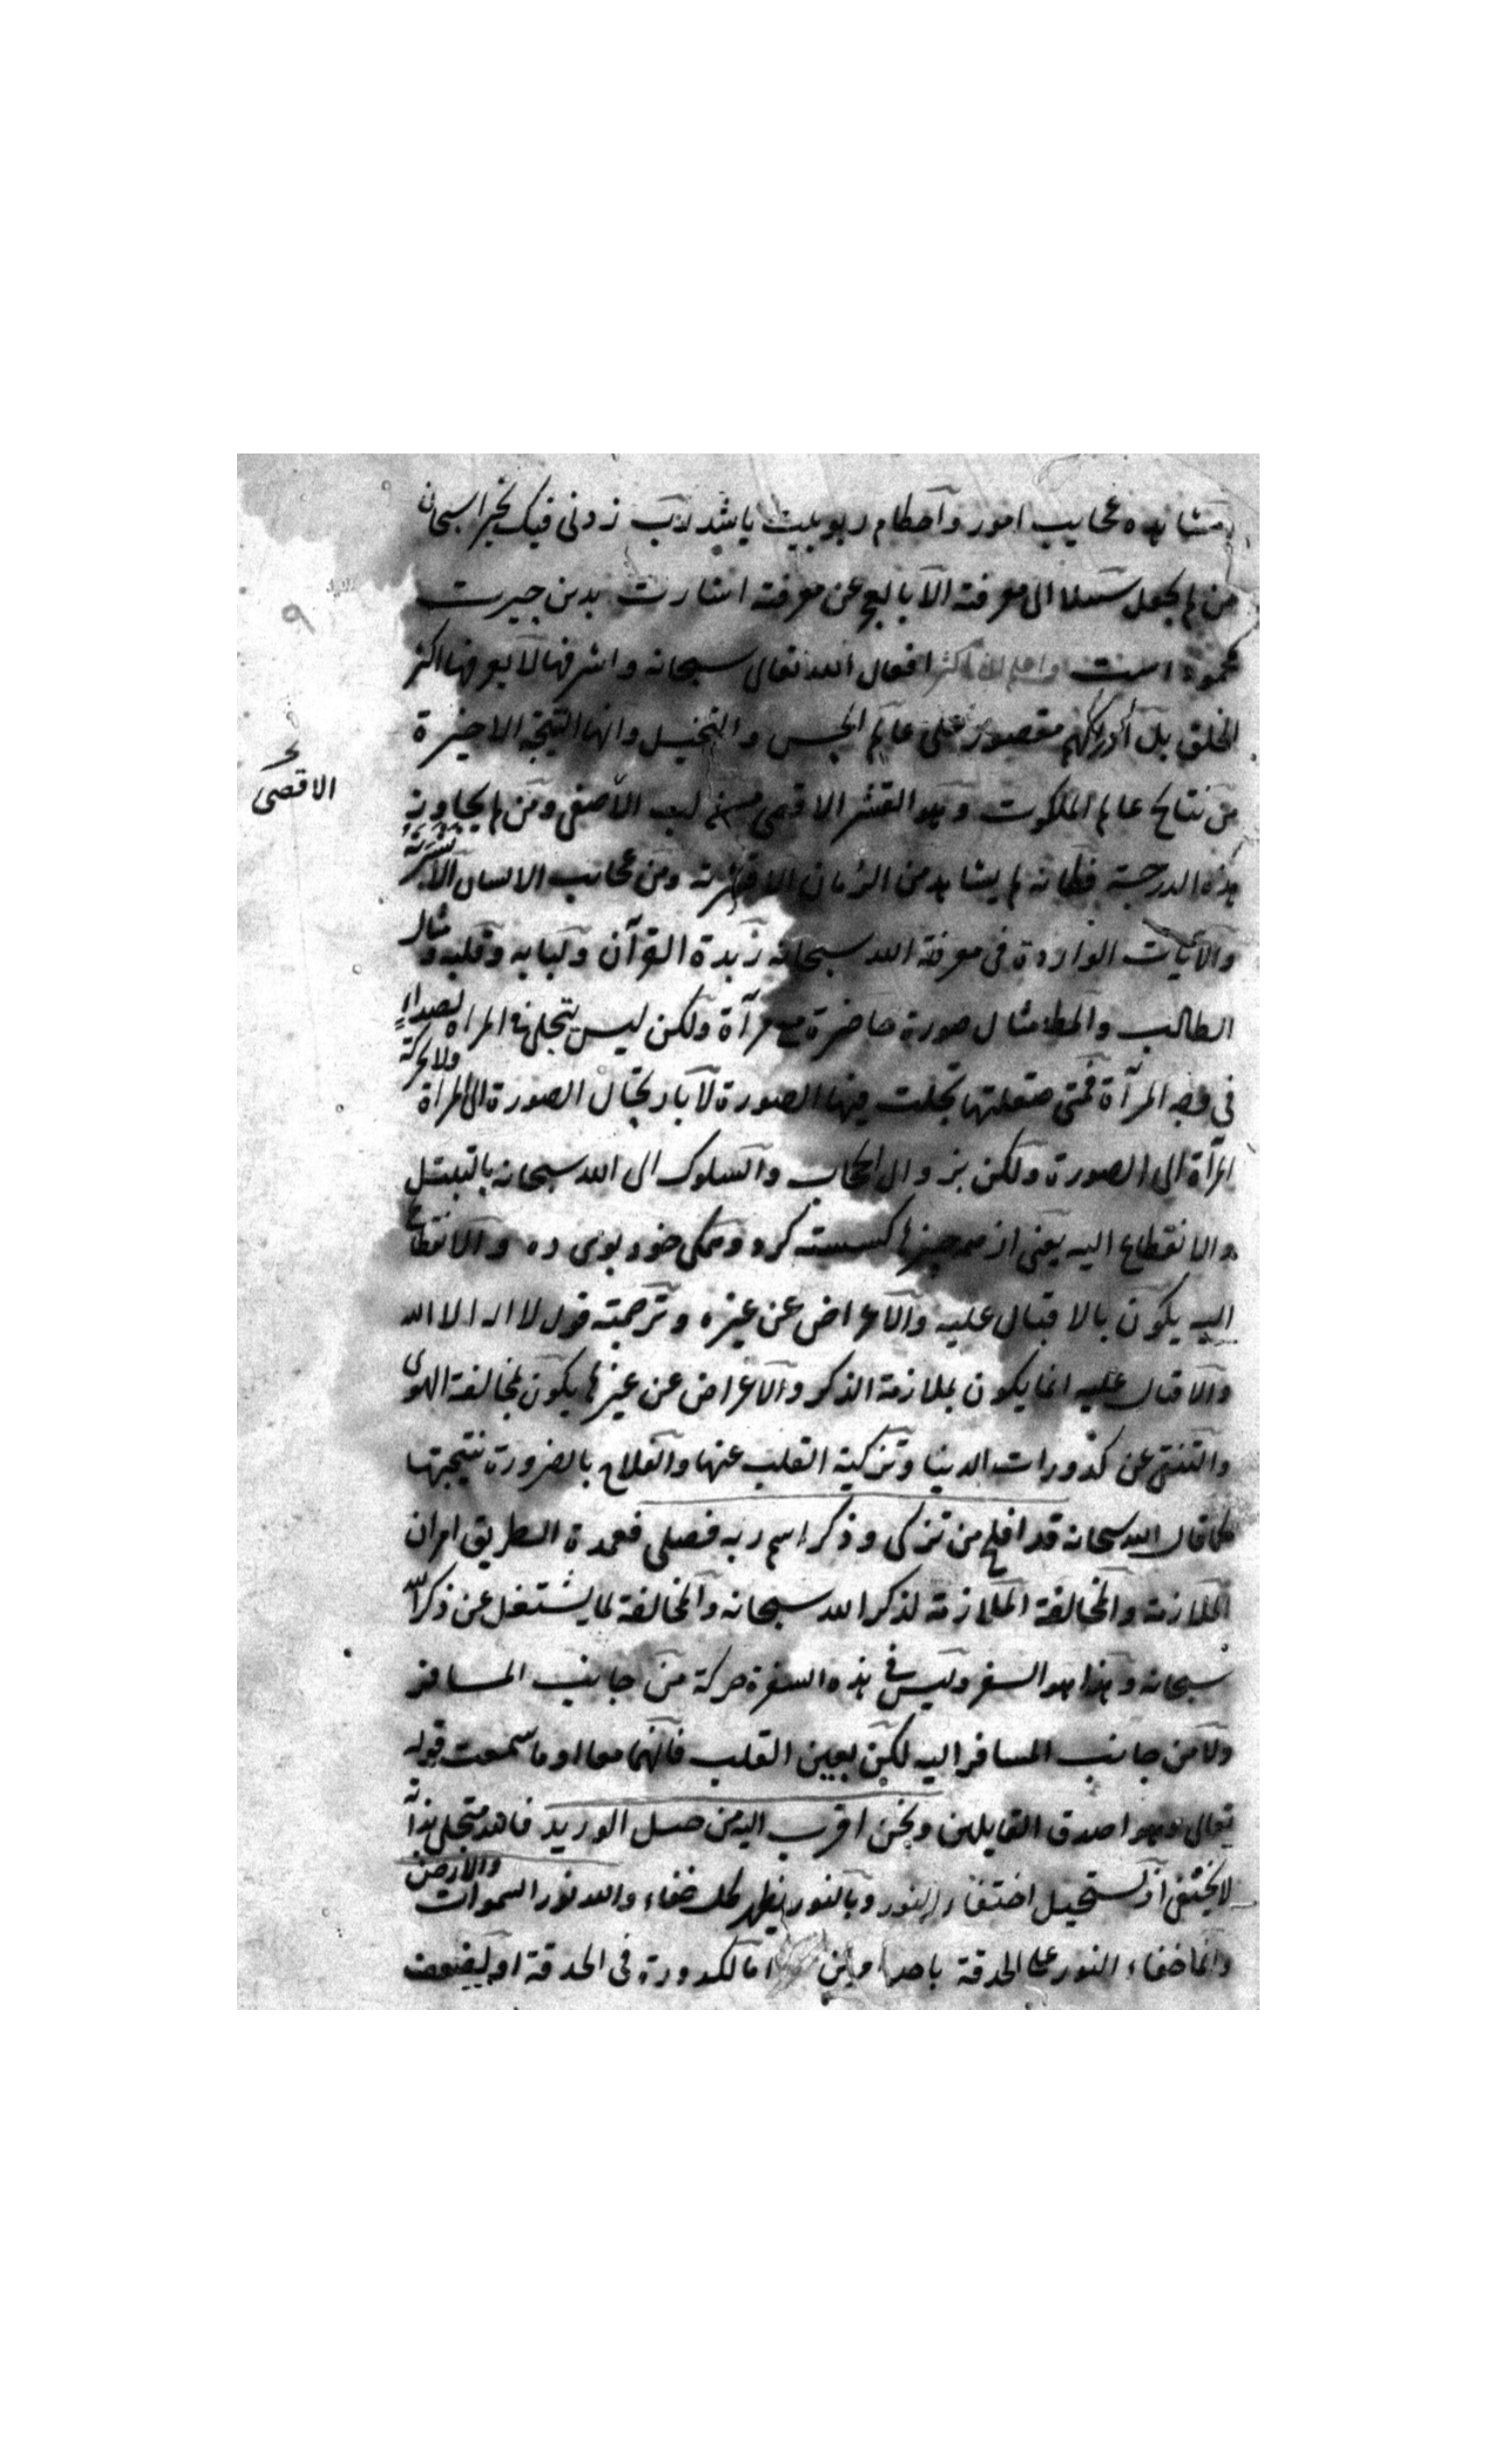 مشاهده عجایب امور واحطام ربوبیت یا شد رب زدنی فیک تحیرا سبحان
من لم یجعل سبیلا الی معرفته الا بالعجز عن معرفته اشارت بدین حیرت
محموده است واعلم ان اکثر افعال الله تعالی سبحانه واشرفها لا یعرفها اکثر
الخلق بل ادراکهم مقصور علی عالم الحس والتخیل وانها النتیجة الاخیرة
من نتایج عالم الملکوت وهو القشر الاقصی عن لب الاصفی ومن لم یجاوز
الاقصی
هذه الدرجة فکانه لم یشاهد من الرمان الا قشرته ومن عجائب الانسان الا بشرته
والآیات الواردة فی معرفة الله سبحانه زبدة القرآن ولبابه وقلبه ومثال
الطالب والمط مثال صورة حاضرة مع مرآة ولکن لیس یتجلی فی المراه لصداء
فی وجه المرآة فمتی صقلتها تجلت فیها الصورة لا بارتحال الصورة الی المرآة ولا بحرکة
المرآة الی الصورة ولکن بزوال الحجاب والسلوک الی الله سبحانه بالتبتل
والانقطاع الیه یعنی از همه چیزها کسسته کرد وهمکی خود بوی ده والانقطاع
الیه یکون بالاقبال علیه والاعراض عن غیره وترجمته قول لا اله الا الله
والاقبال علیه انما یکون بملازمة الذکر والاعراض عن غیرها یکون بمخالفة الهوی
والتنقی عن کدورات الدنیا وتزکیة القلب عنها والفلاح بالضرورة نتیجتها
کما قال الله سبحانه قد افلح من تزکی وذکر اسم ربه فصلی فعمدة الطریق امران
الملازمة والمخالفة الملازمة لذکر الله سبحانه والمخالفة لما یشتغل عن ذکر الله
سبحانه وهذا هو السفر ولیس فی هذه السفرة حرکة من جانب المسافر
ولا من جانب المسافر الیه لکن بعین القلب فانهما معا او ما سمعت قوله
تعالی وهو اصدق القایلین ونحن اقرب الیه من حبل الورید فالله متجلی بذاته
لا یختفی اذ یستحیل اختفاء النور وبالنور یظهر کل خفاء والله نور السموات والارض
وانما خفاء النور علی الحدقة باحد امرین اما لکدورة فی الحدقة او لضعف